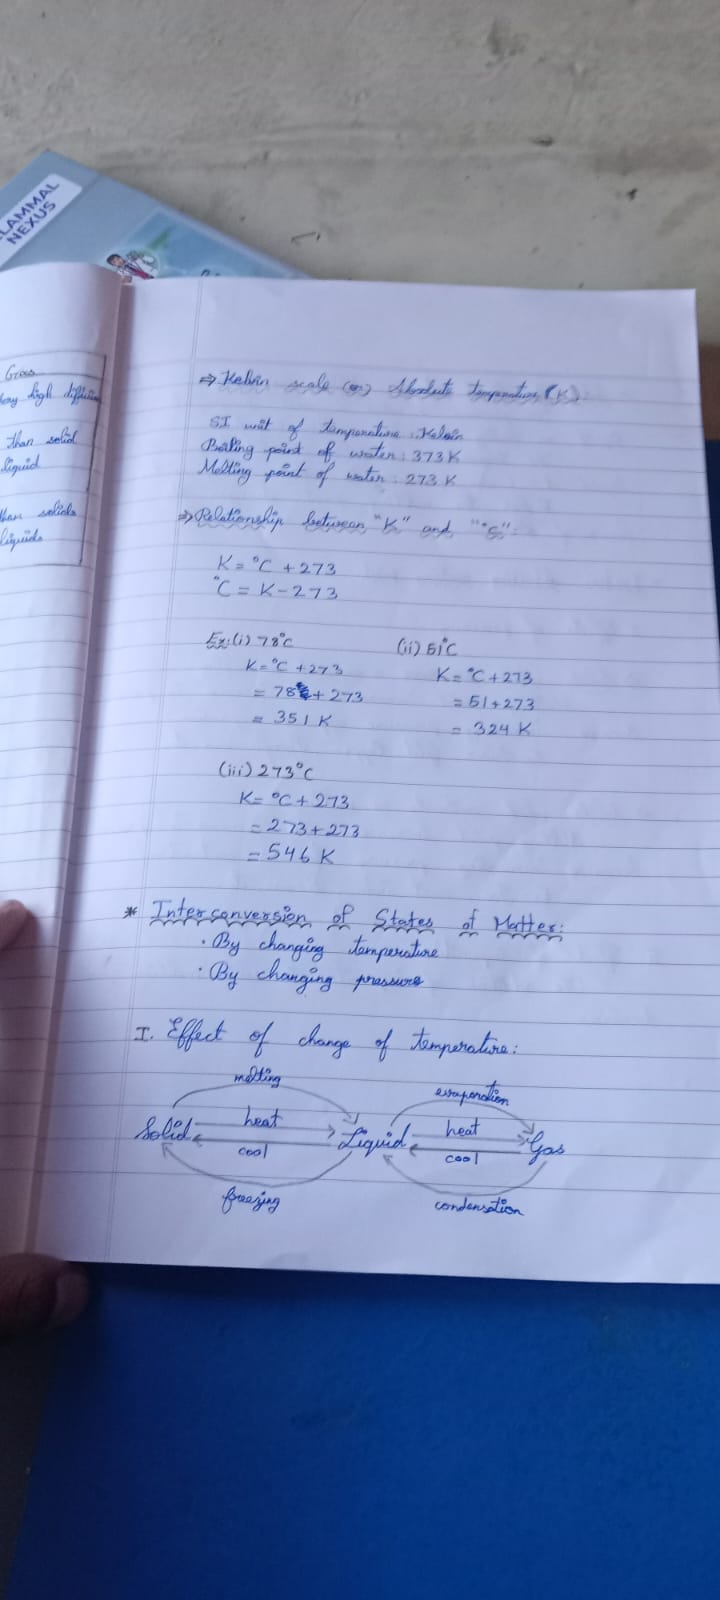 LAMMAL
NEXUS
Gas
high diffusion
than solid
liquid
than solids
liquids
⇒ Kelvin scale (or) Absolute temperature (K)
SI unit of temperature : Kelvin
Boiling point of water : 373 K
Melting point of water : 273 K
⇒ Relationship between "K" and "°C" :
K = °C + 273
°C = K - 273
Ex: (i) 78°C
K = °C + 273
= 78 + 273
= 351 K
(ii) 51°C
K = °C + 273
= 51 + 273
= 324 K
(iii) 273°C
K = °C + 273
= 273 + 273
= 546 K
* Interconversion of States of Matter:
· By changing temperature
· By changing pressure
I. Effect of change of temperature:
melting
evaporation
Solid heat Liquid heat Gas
cool cool
freezing
condensation